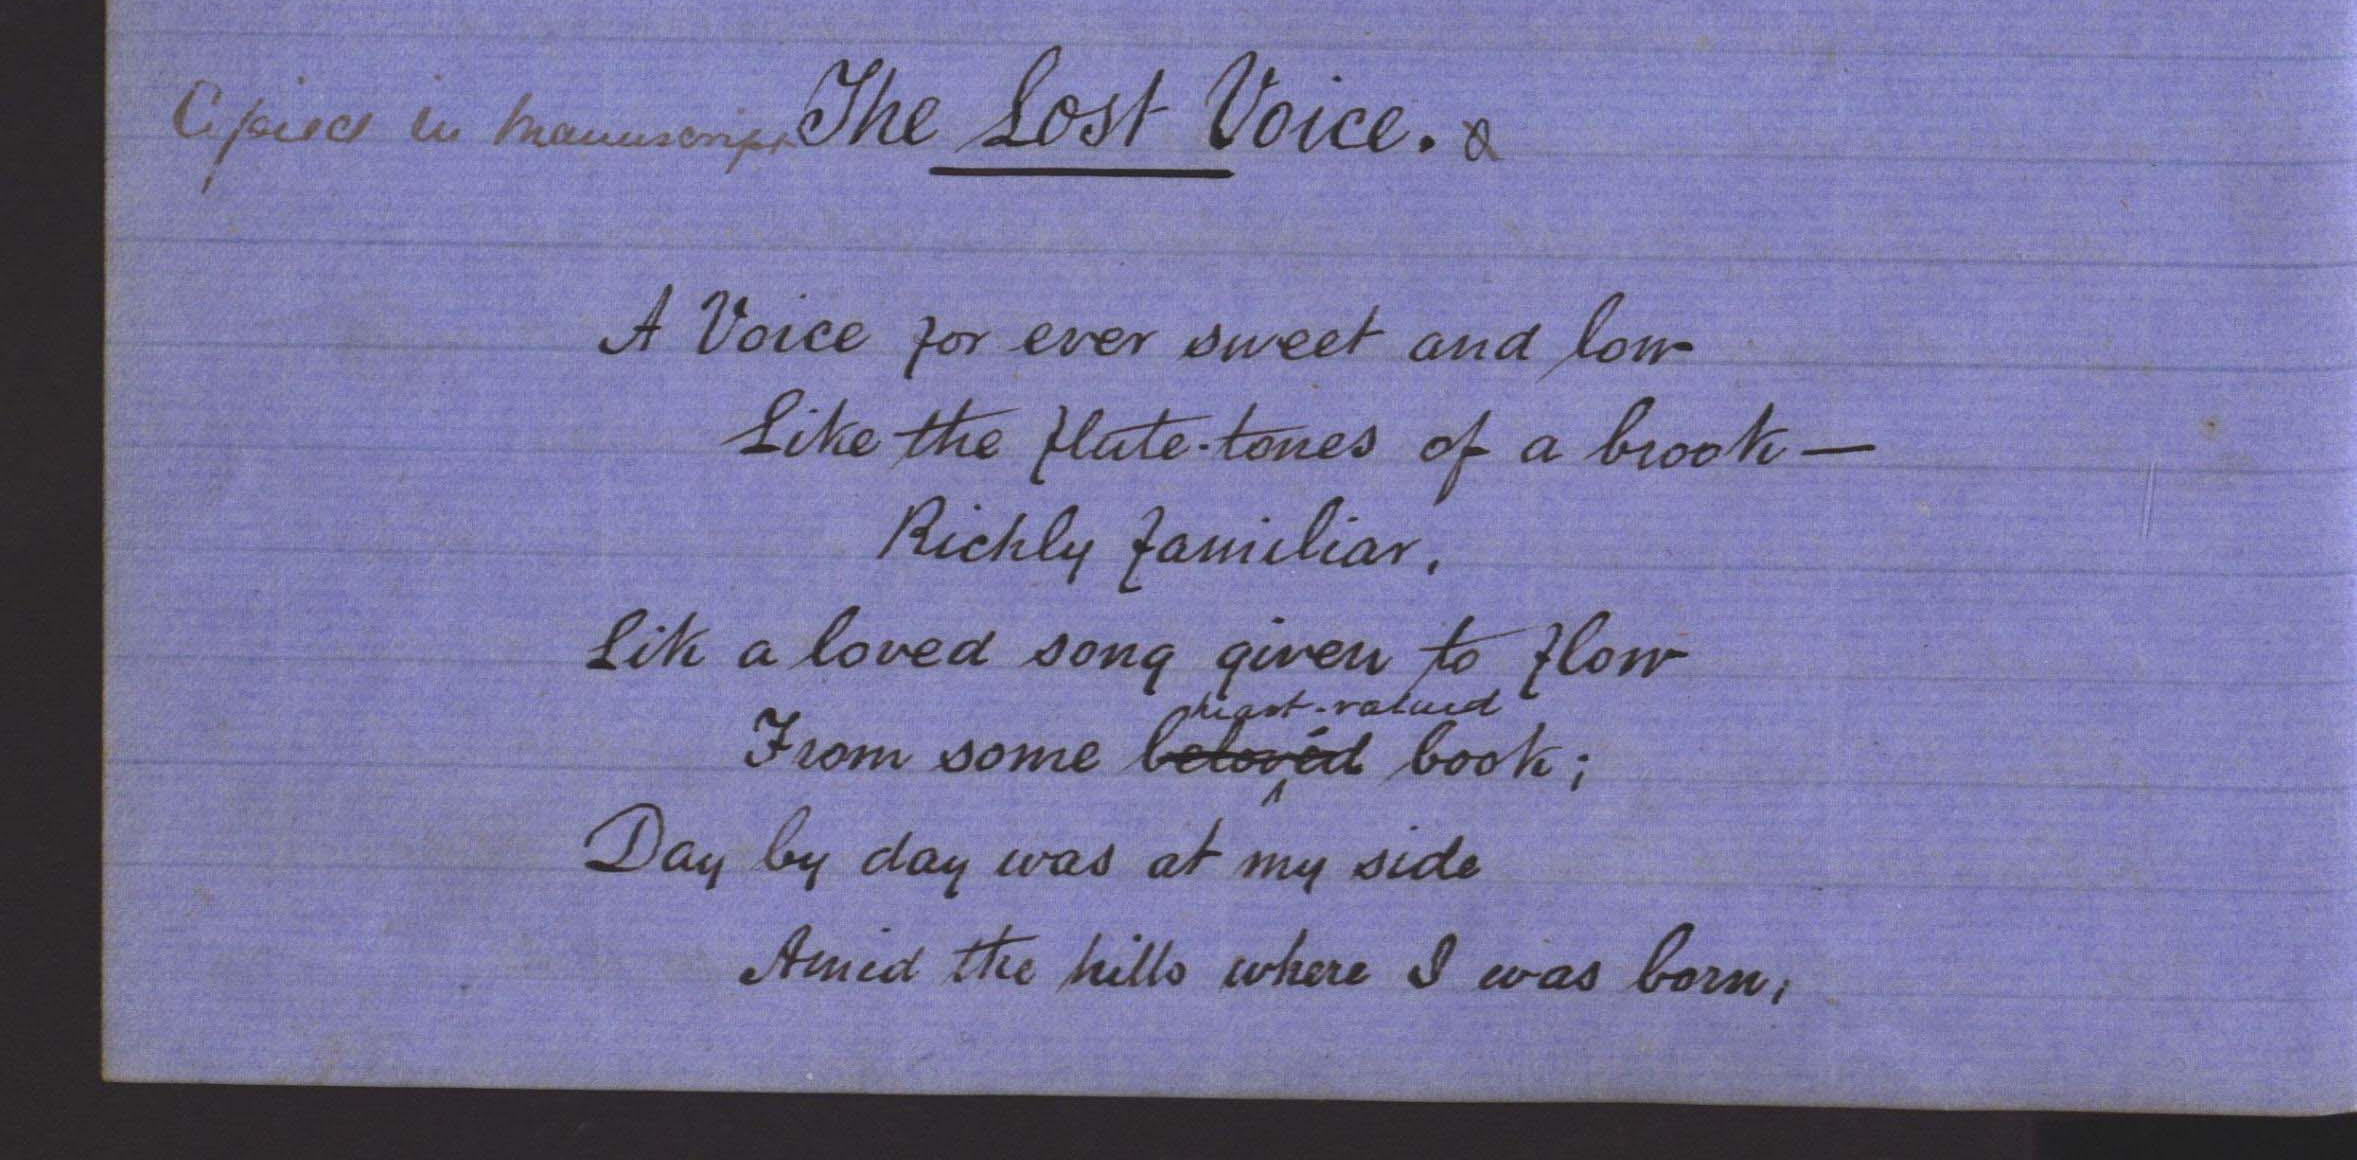 Copied in Manuscript
The Lost Voice.
A Voice for ever sweet and low
Like the flute-tones of a brook —
Richly familiar,
Lik a loved song given to flow
heart-valued
From some belovéd book;
Day by day was at my side
Amid the hills where I was born,